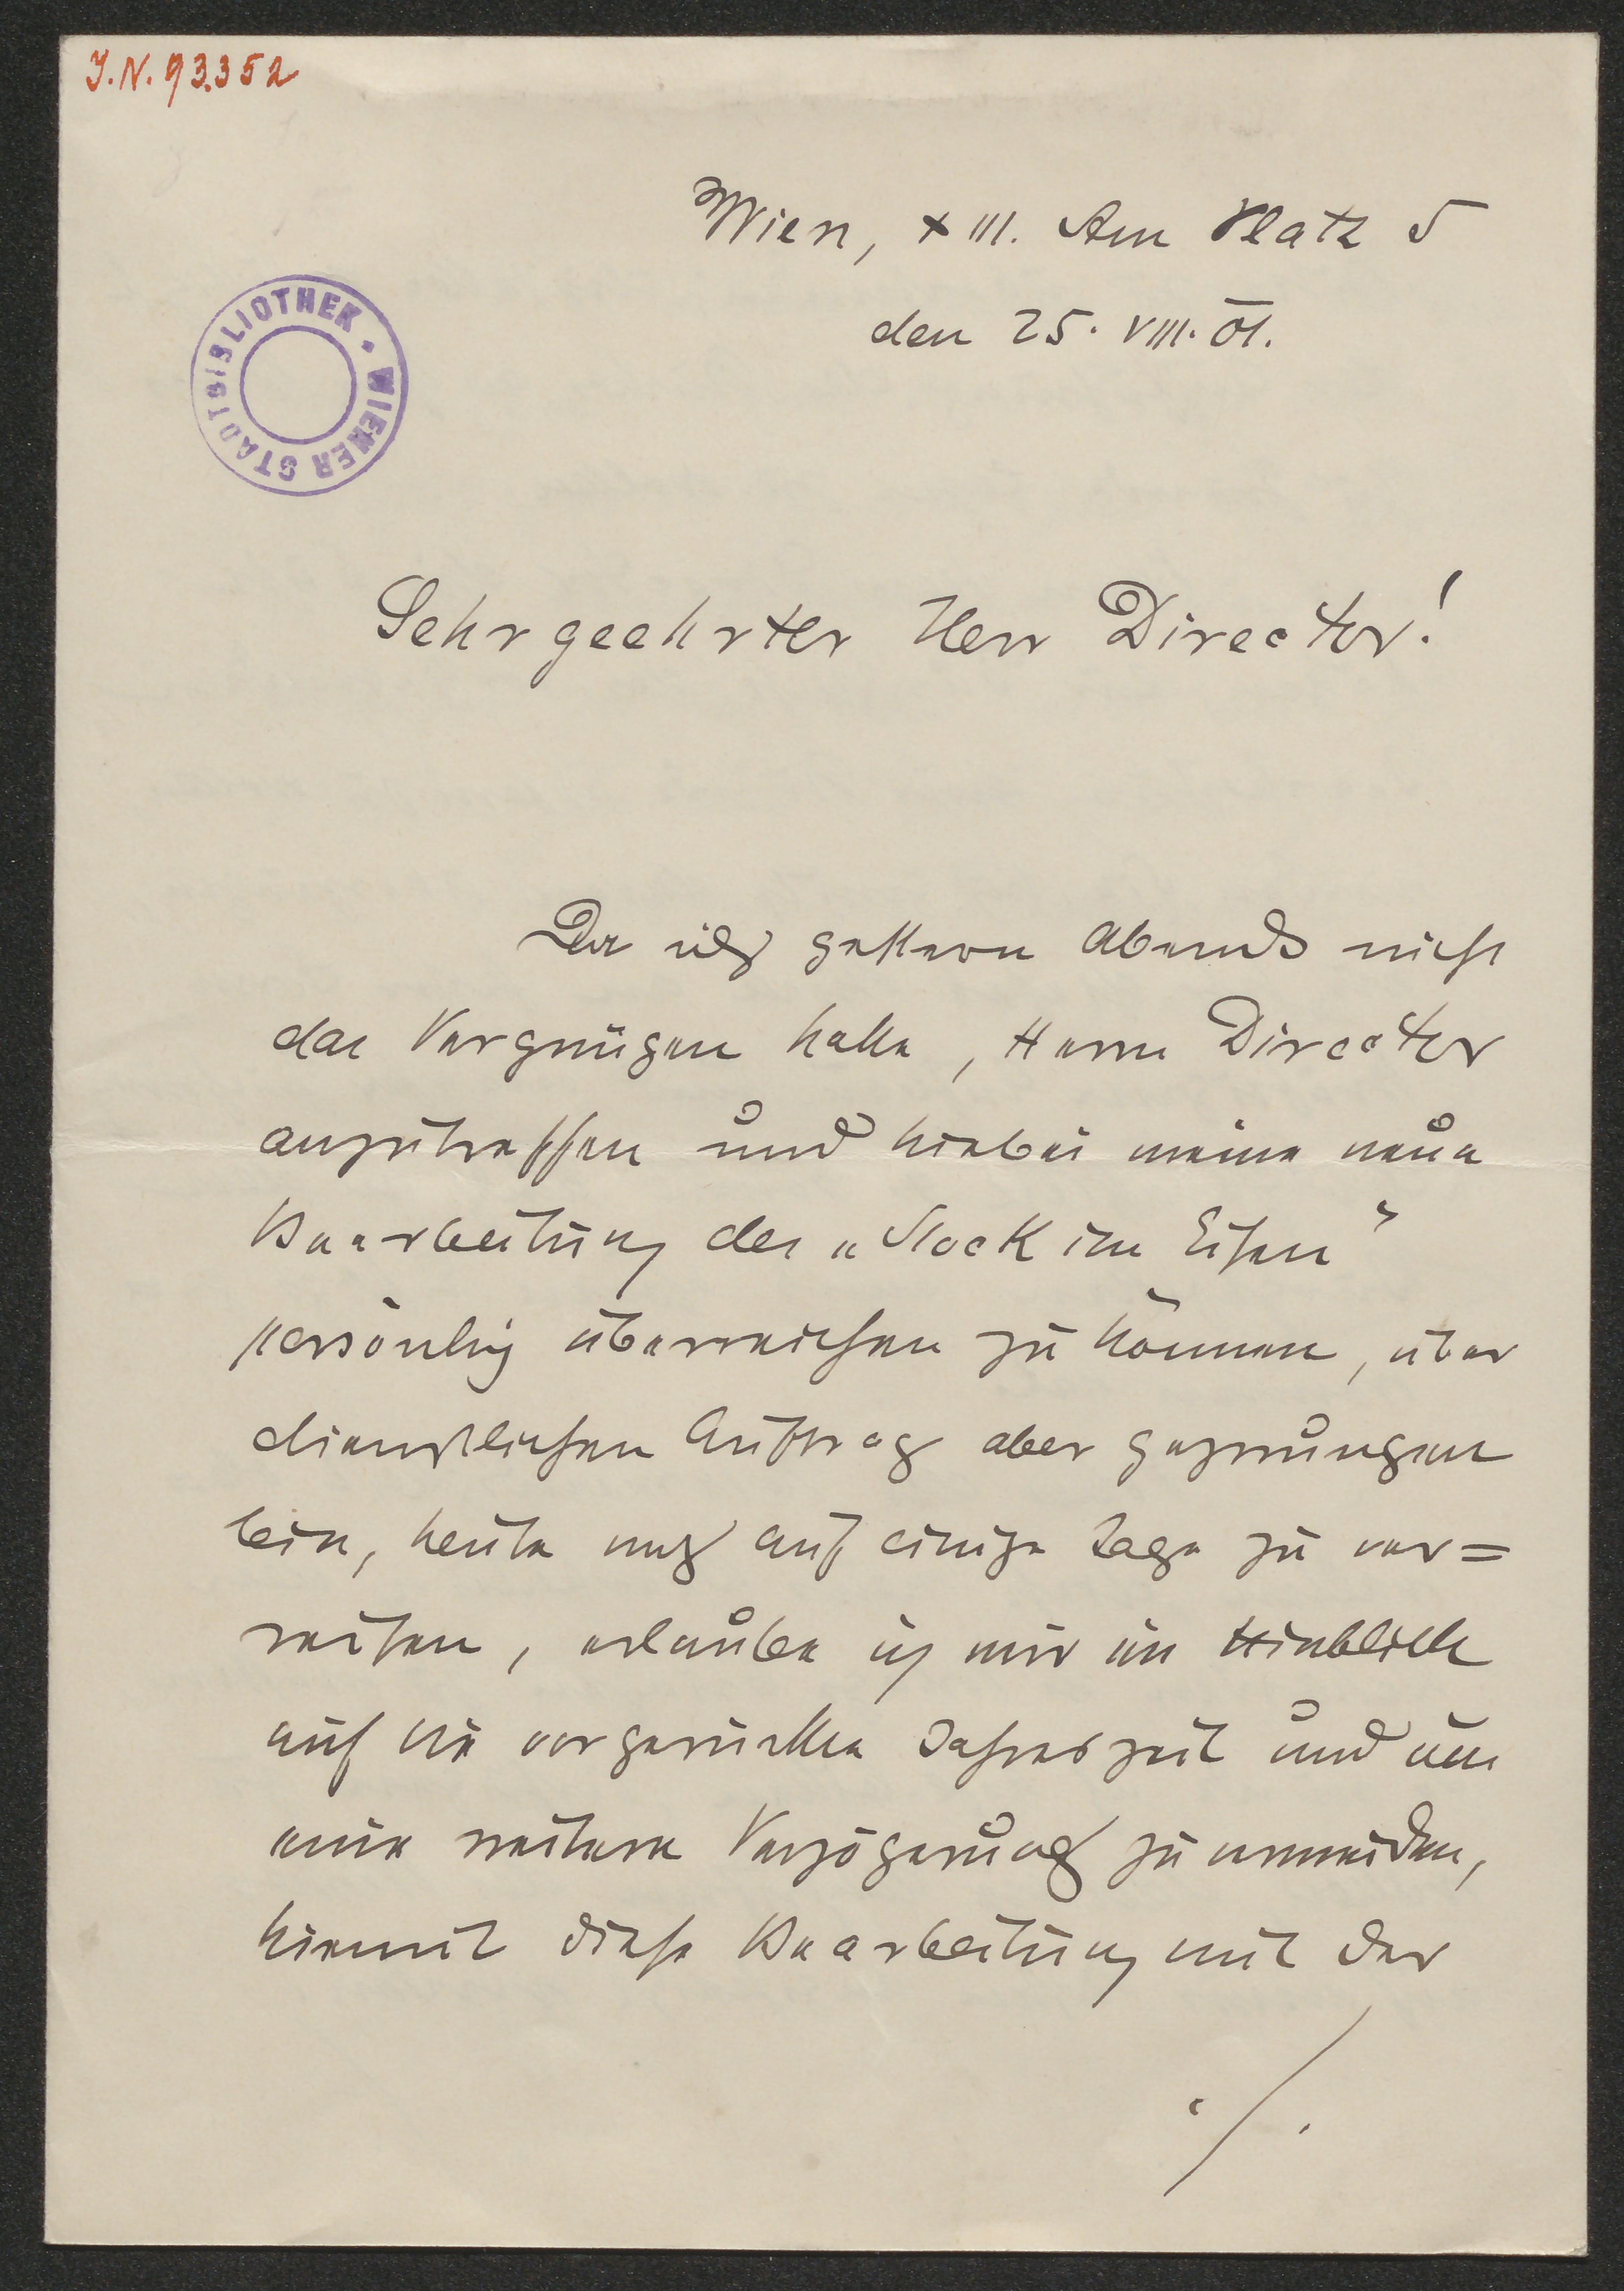 J.N. 93.352
Wien, XIII. Am Platz 5
den 25. VIII. 01.
WIENER STADTBIBLIOTHEK
Sehrgeehrter Herr Director!
Da ich gestern Abends nicht
das Vergnügen hatte, Herrn Director
anzutreffen und hiebei meine neue
Bearbeitung des „Stock im Eisen"
persönlich überreichen zu können, über
dienstlichen Auftrag aber gezwungen
bin, heute noch auf einige Tage zu ver=
reisen, erlaube ich mir im Hinblick
auf die vorgerückte Jahreszeit und um
eine weitere Verzögerung zu vermeiden,
hiemit diese Bearbeitung mit der
./.